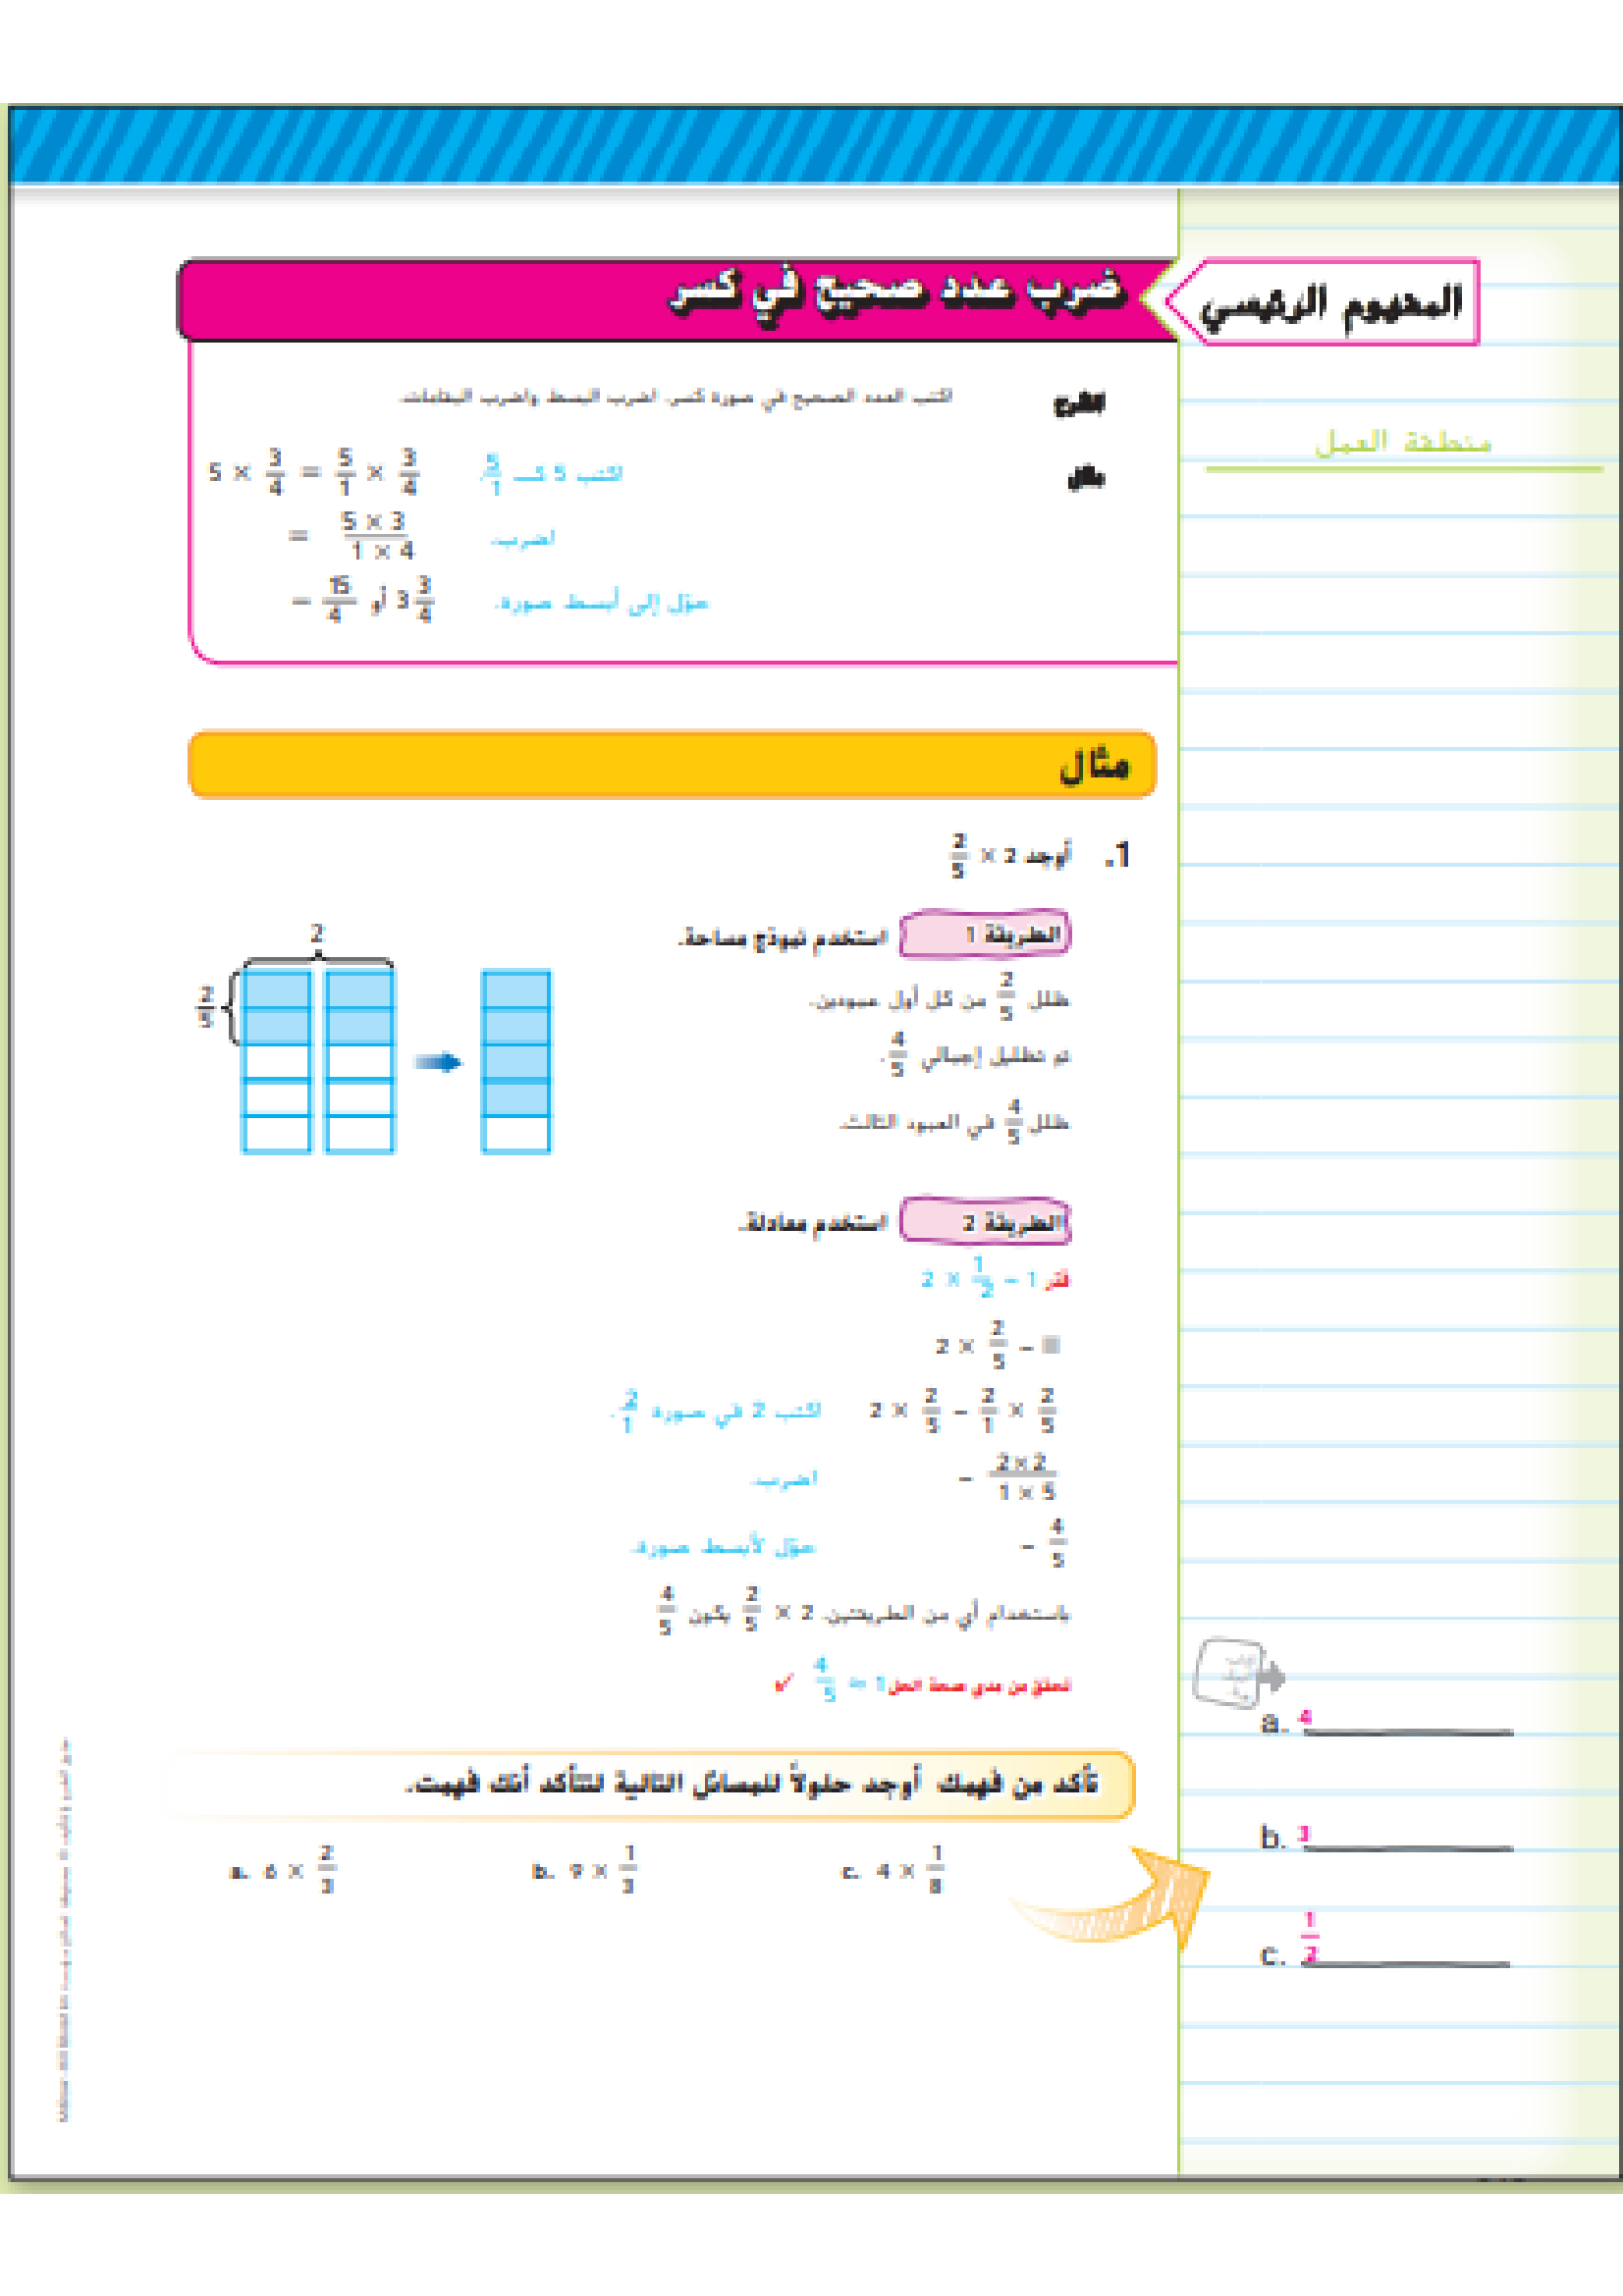 المفهوم الرئيسي
ضرب عدد صحيح في كسر
منطقة العمل
الشرح
اكتب العدد الصحيح في صورة كسر. اضرب البسط واضرب المقامات.
مثال
5 × 3/4 = 5/1 × 3/4 اكتب 5 كـ 5/1.
= 5 × 3 / 1 × 4 اضرب.
= 15/4 أو 3 3/4 حوّل إلى أبسط صورة.
مثال
1. أوجد 2 × 2/5
الطريقة 1 استخدم نموذج مساحة.
ظلل 2/5 من كل أول عمودين.
تم تظليل إجمالي 4/5.
ظلل 4/5 في العمود الثالث.
2
2/5
الطريقة 2 استخدم معادلة.
قدّر 2 × 1/2 = 1
2 × 2/5 = ■
2 × 2/5 = 2/1 × 2/5 اكتب 2 في صورة 2/1.
= 2 × 2 / 1 × 5 اضرب.
= 4/5 حوّل لأبسط صورة.
باستخدام أي من الطريقتين، 2 × 2/5 يكون 4/5
تحقق من مدى صحة الحل 4/5 ≈ 1 ✓
تأكد من فهمك أوجد حلولاً للمسائل التالية لتتأكد أنك فهمت.
a. 6 × 2/3
b. 9 × 1/3
c. 4 × 1/8
a. 4
b. 3
c. 1/2